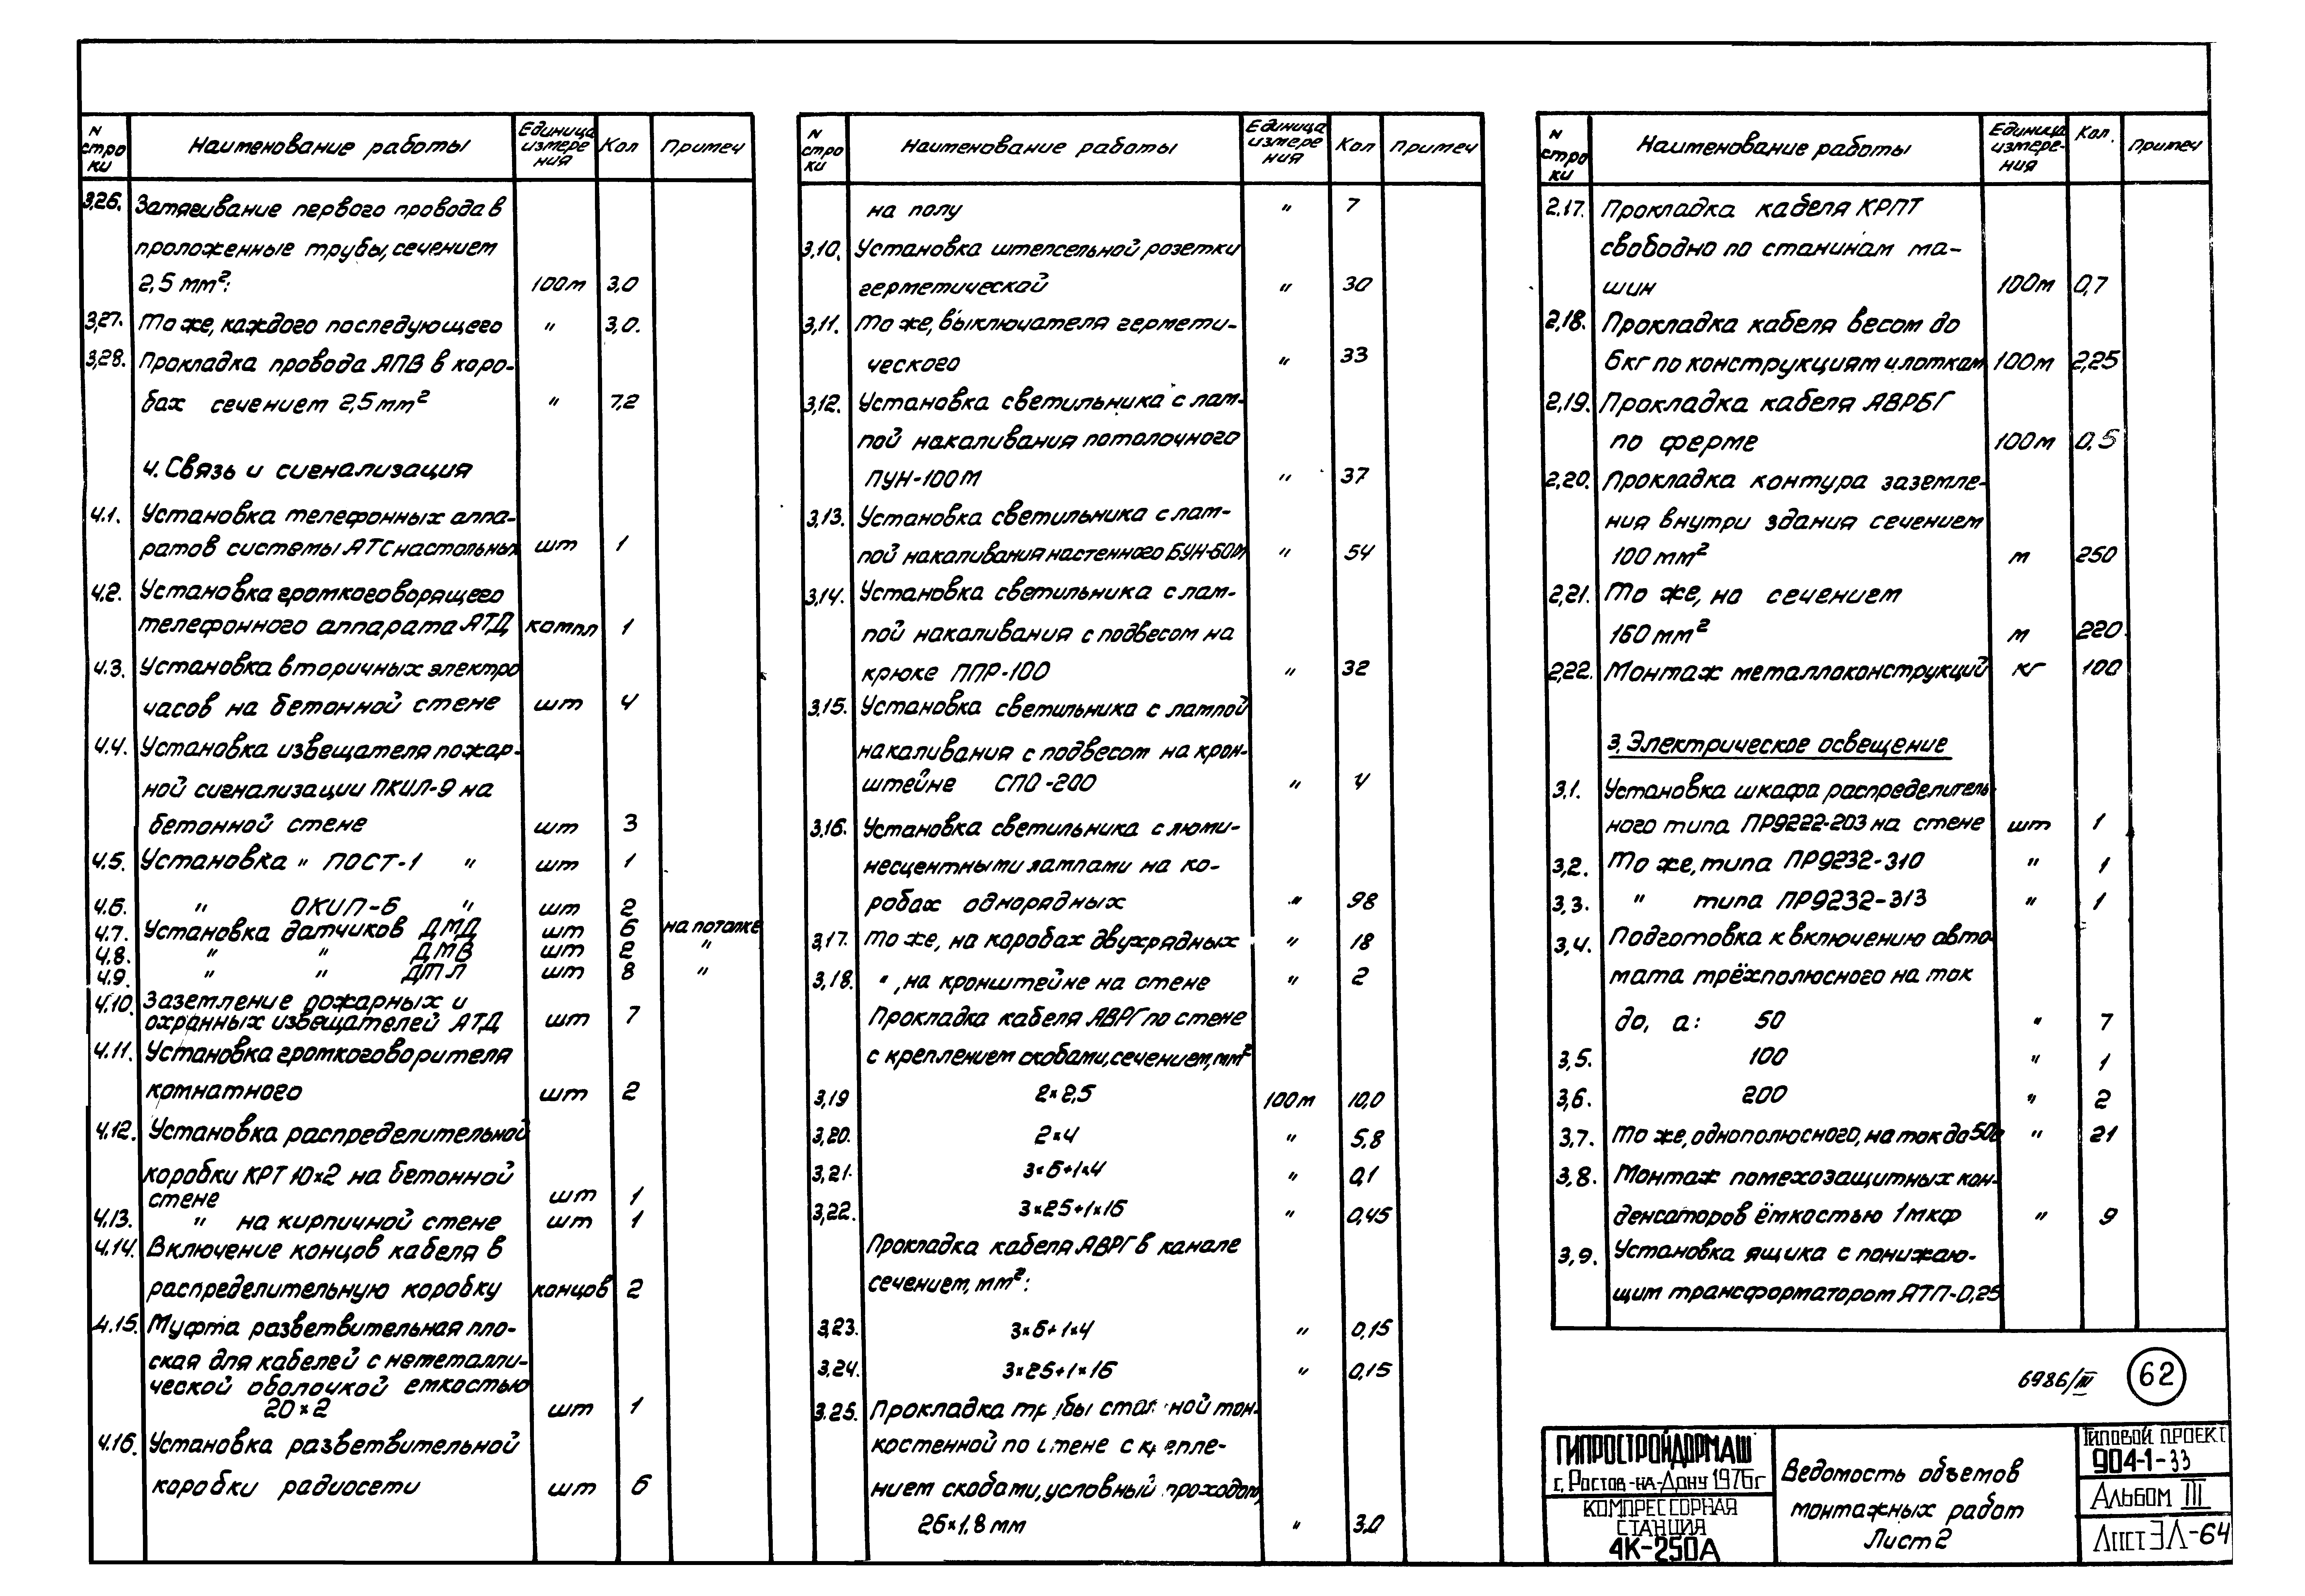 N стро ки | Наименование работы | Единица измере ния | Кол | Примеч
3.26. Затягивание первого провода в
проложенные трубы, сечением
2,5 мм²: 100м 3,0
3,27. То же, каждого последующего " 3,0.
3,28. Прокладка провода АПВ в коро-
бах сечением 2,5 мм² " 7,2
4. Связь и сигнализация
4.1. Установка телефонных аппа-
ратов системы АТС настольных шт 1
4.2. Установка громкоговорящего
телефонного аппарата АТД компл 1
4.3. Установка вторичных электро
часов на бетонной стене шт 4
4.4. Установка извещателя пожар-
ной сигнализации ПКИЛ-9 на
бетонной стене шт 3
4.5. Установка " ПОСТ-1 " шт 1
4.6. " ОКИП-6 " шт 2
4.7. Установка датчиков ДМД шт 6 на потолке
4.8. " " ДМВ шт 2 "
4.9. " " ДТЛ шт 8 "
4.10. Заземление пожарных и
охранных извещателей АТД шт 7
4.11. Установка громкоговорителя
комнатного шт 2
4.12. Установка распределительной
коробки КРТ 10×2 на бетонной
стене шт 1
4.13. " на кирпичной стене шт 1
4.14. Включение концов кабеля в
распределительную коробку концов 2
4.15. Муфта разветвительная пло-
ская для кабелей с неметалли-
ческой оболочкой емкостью
20×2 шт 1
4.16. Установка разветвительной
коробки радиосети шт 6
N стро ки | Наименование работы | Единица измере ния | Кол | Примеч
на полу " 7
3,10. Установка штепсельной розетки
герметической " 30
3,11. То же, выключателя гермети-
ческого " 33
3,12. Установка светильника с лам-
пой накаливания потолочного
ПУН-100М " 37
3,13. Установка светильника с лам-
пой накаливания настенного БУН-60М " 54
3,14. Установка светильника с лам-
пой накаливания с подвесом на
крюке ППР-100 " 32
3,15. Установка светильника с лампой
накаливания с подвесом на крон-
штейне СПО-200 " 4
3,16. Установка светильника с люми-
несцентными лампами на ко-
робах однорядных " 98
3,17. То же, на коробах двухрядных " 18
3,18. ", на кронштейне на стене " 2
Прокладка кабеля АВРГ по стене
с креплением скобами, сечением, мм²
3,19 2×2,5 100м 10,0
3,20. 2×4 " 5,8
3,21. 3×6+1×4 " 0,1
3,22. 3×25+1×16 " 0,45
Прокладка кабеля АВРГ в канале
сечением, мм²:
3,23. 3×6+1×4 " 0,15
3,24. 3×25+1×16 " 0,15
3.25. Прокладка трубы стальной тон-
костенной по стене с крепле-
нием скобами, условный проходом,
26×1,8 мм " 3,0
N стро ки | Наименование работы | Единица измере- ния | Кол. | Примеч
2,17. Прокладка кабеля КРПТ
свободно по станинам ма-
шин 100м 0,7
2,18. Прокладка кабеля весом до
6кг по конструкциям и лоткам 100м 2,25
2,19. Прокладка кабеля АВРБГ
по ферме 100м 0,5
2,20. Прокладка контура заземле-
ния внутри здания сечением
100 мм² м 250
2,21. То же, но сечением
160 мм² м 220
2,22. Монтаж металлоконструкций кг 100
3. Электрическое освещение
3.1. Установка шкафа распределитель
ного типа ПР9222-203 на стене шт 1
3,2. То же, типа ПР9232-310 " 1
3,3. " типа ПР9232-313 " 1
3,4. Подготовка к включению авто-
мата трёхполюсного на ток
до, а: 50 " 7
3,5. 100 " 1
3,6. 200 " 2
3,7. То же, однополюсного, на ток до 50а " 21
3,8. Монтаж помехозащитных кон-
денсаторов ёмкостью 1мкф " 9
3,9. Установка ящика с понижаю-
щим трансформатором ЯТП-0,25
6986/III 62
ГИПРОСТРОЙДОРМАШ
г. Ростов-на-Дону 1976г
КОМПРЕССОРНАЯ
СТАНЦИЯ
4К-250А
Ведомость объемов
монтажных работ
Лист 2
Типовой проект
904-1-33
Альбом III
Лист ЭЛ-64